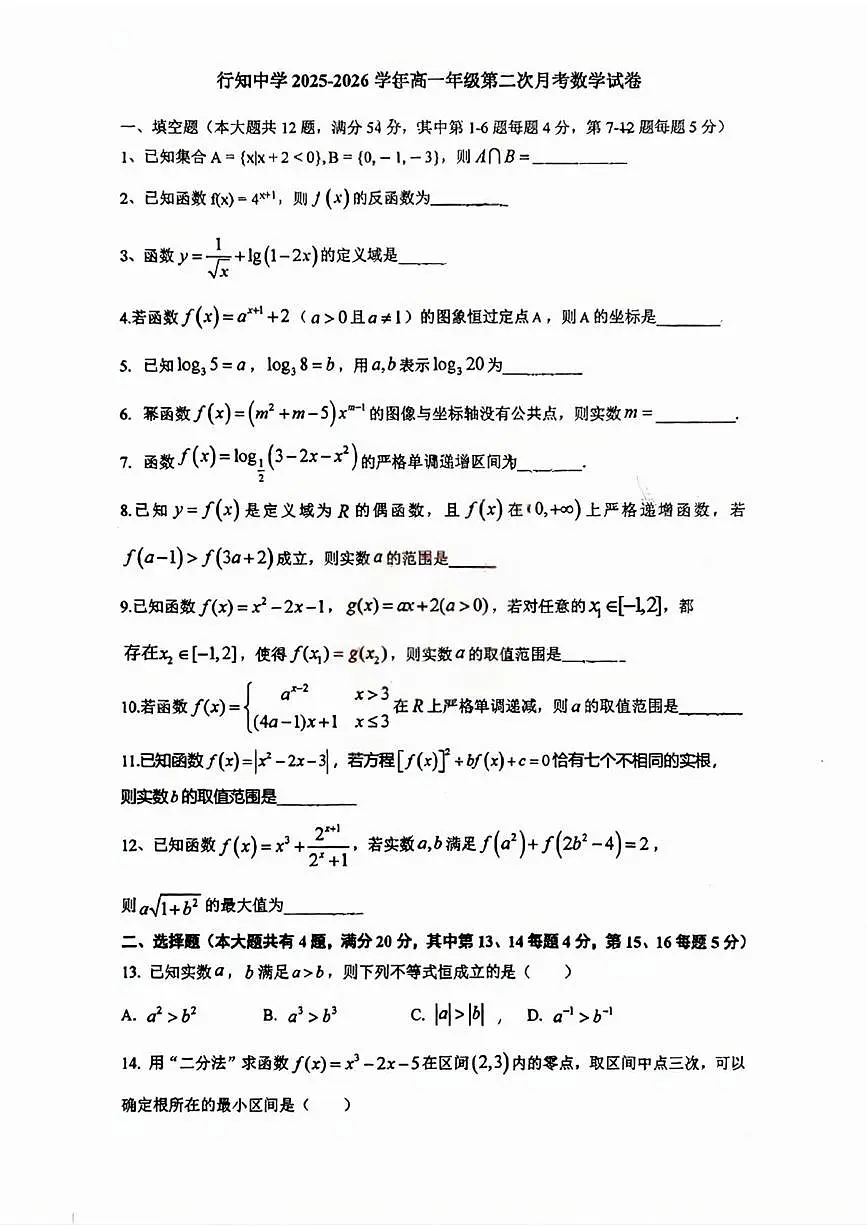 行知中学 2025-2026 学年高一年级第二次月考数学试卷
一、填空题（本大题共 12 题，满分 54 分，其中第 1-6 题每题 4 分，第 7-12 题每题 5 分）
1、已知集合 A = {x|x + 2 < 0}, B = {0, − 1, − 3}，则 A∩B = ________
2、已知函数 f(x) = 4^{x+1}，则 f(x) 的反函数为________
3、函数 y = 1/√x + lg(1−2x) 的定义域是_____
4.若函数 f(x) = a^{x+1} + 2（a > 0 且 a ≠ 1）的图象恒过定点 A，则 A 的坐标是_______.
5. 已知 log₃ 5 = a，log₃ 8 = b，用 a,b 表示 log₃ 20 为________
6. 幂函数 f(x) = (m² + m − 5)x^{m−1} 的图像与坐标轴没有公共点，则实数 m = ________.
7. 函数 f(x) = log_{1/2}(3 − 2x − x²) 的严格单调递增区间为_______.
8.已知 y = f(x) 是定义域为 R 的偶函数，且 f(x) 在 (0,+∞) 上严格递增函数，若
f(a−1) > f(3a+2) 成立，则实数 a 的范围是_____
9.已知函数 f(x) = x² − 2x − 1，g(x) = ax + 2(a > 0)，若对任意的 x₁ ∈[−1,2]，都
存在 x₂ ∈[−1,2]，使得 f(x₁) = g(x₂)，则实数 a 的取值范围是_______
10.若函数 f(x) = { a^{x−2} x > 3
(4a−1)x+1 x ≤ 3 在 R 上严格单调递减，则 a 的取值范围是_______
11.已知函数 f(x) = |x² − 2x − 3|，若方程 [f(x)]² + bf(x) + c = 0 恰有七个不相同的实根，
则实数 b 的取值范围是________
12、已知函数 f(x) = x³ + 2^{x+1}/(2^x + 1)，若实数 a,b 满足 f(a²) + f(2b² − 4) = 2，
则 a√(1+b²) 的最大值为________
二、选择题（本大题共有 4 题，满分 20 分，其中第 13、14 每题 4 分，第 15、16 每题 5 分）
13. 已知实数 a，b 满足 a > b，则下列不等式恒成立的是（ ）
A. a² > b² B. a³ > b³ C. |a| > |b| , D. a⁻¹ > b⁻¹
14. 用“二分法”求函数 f(x) = x³ − 2x − 5 在区间 (2,3) 内的零点，取区间中点三次，可以
确定根所在的最小区间是（ ）